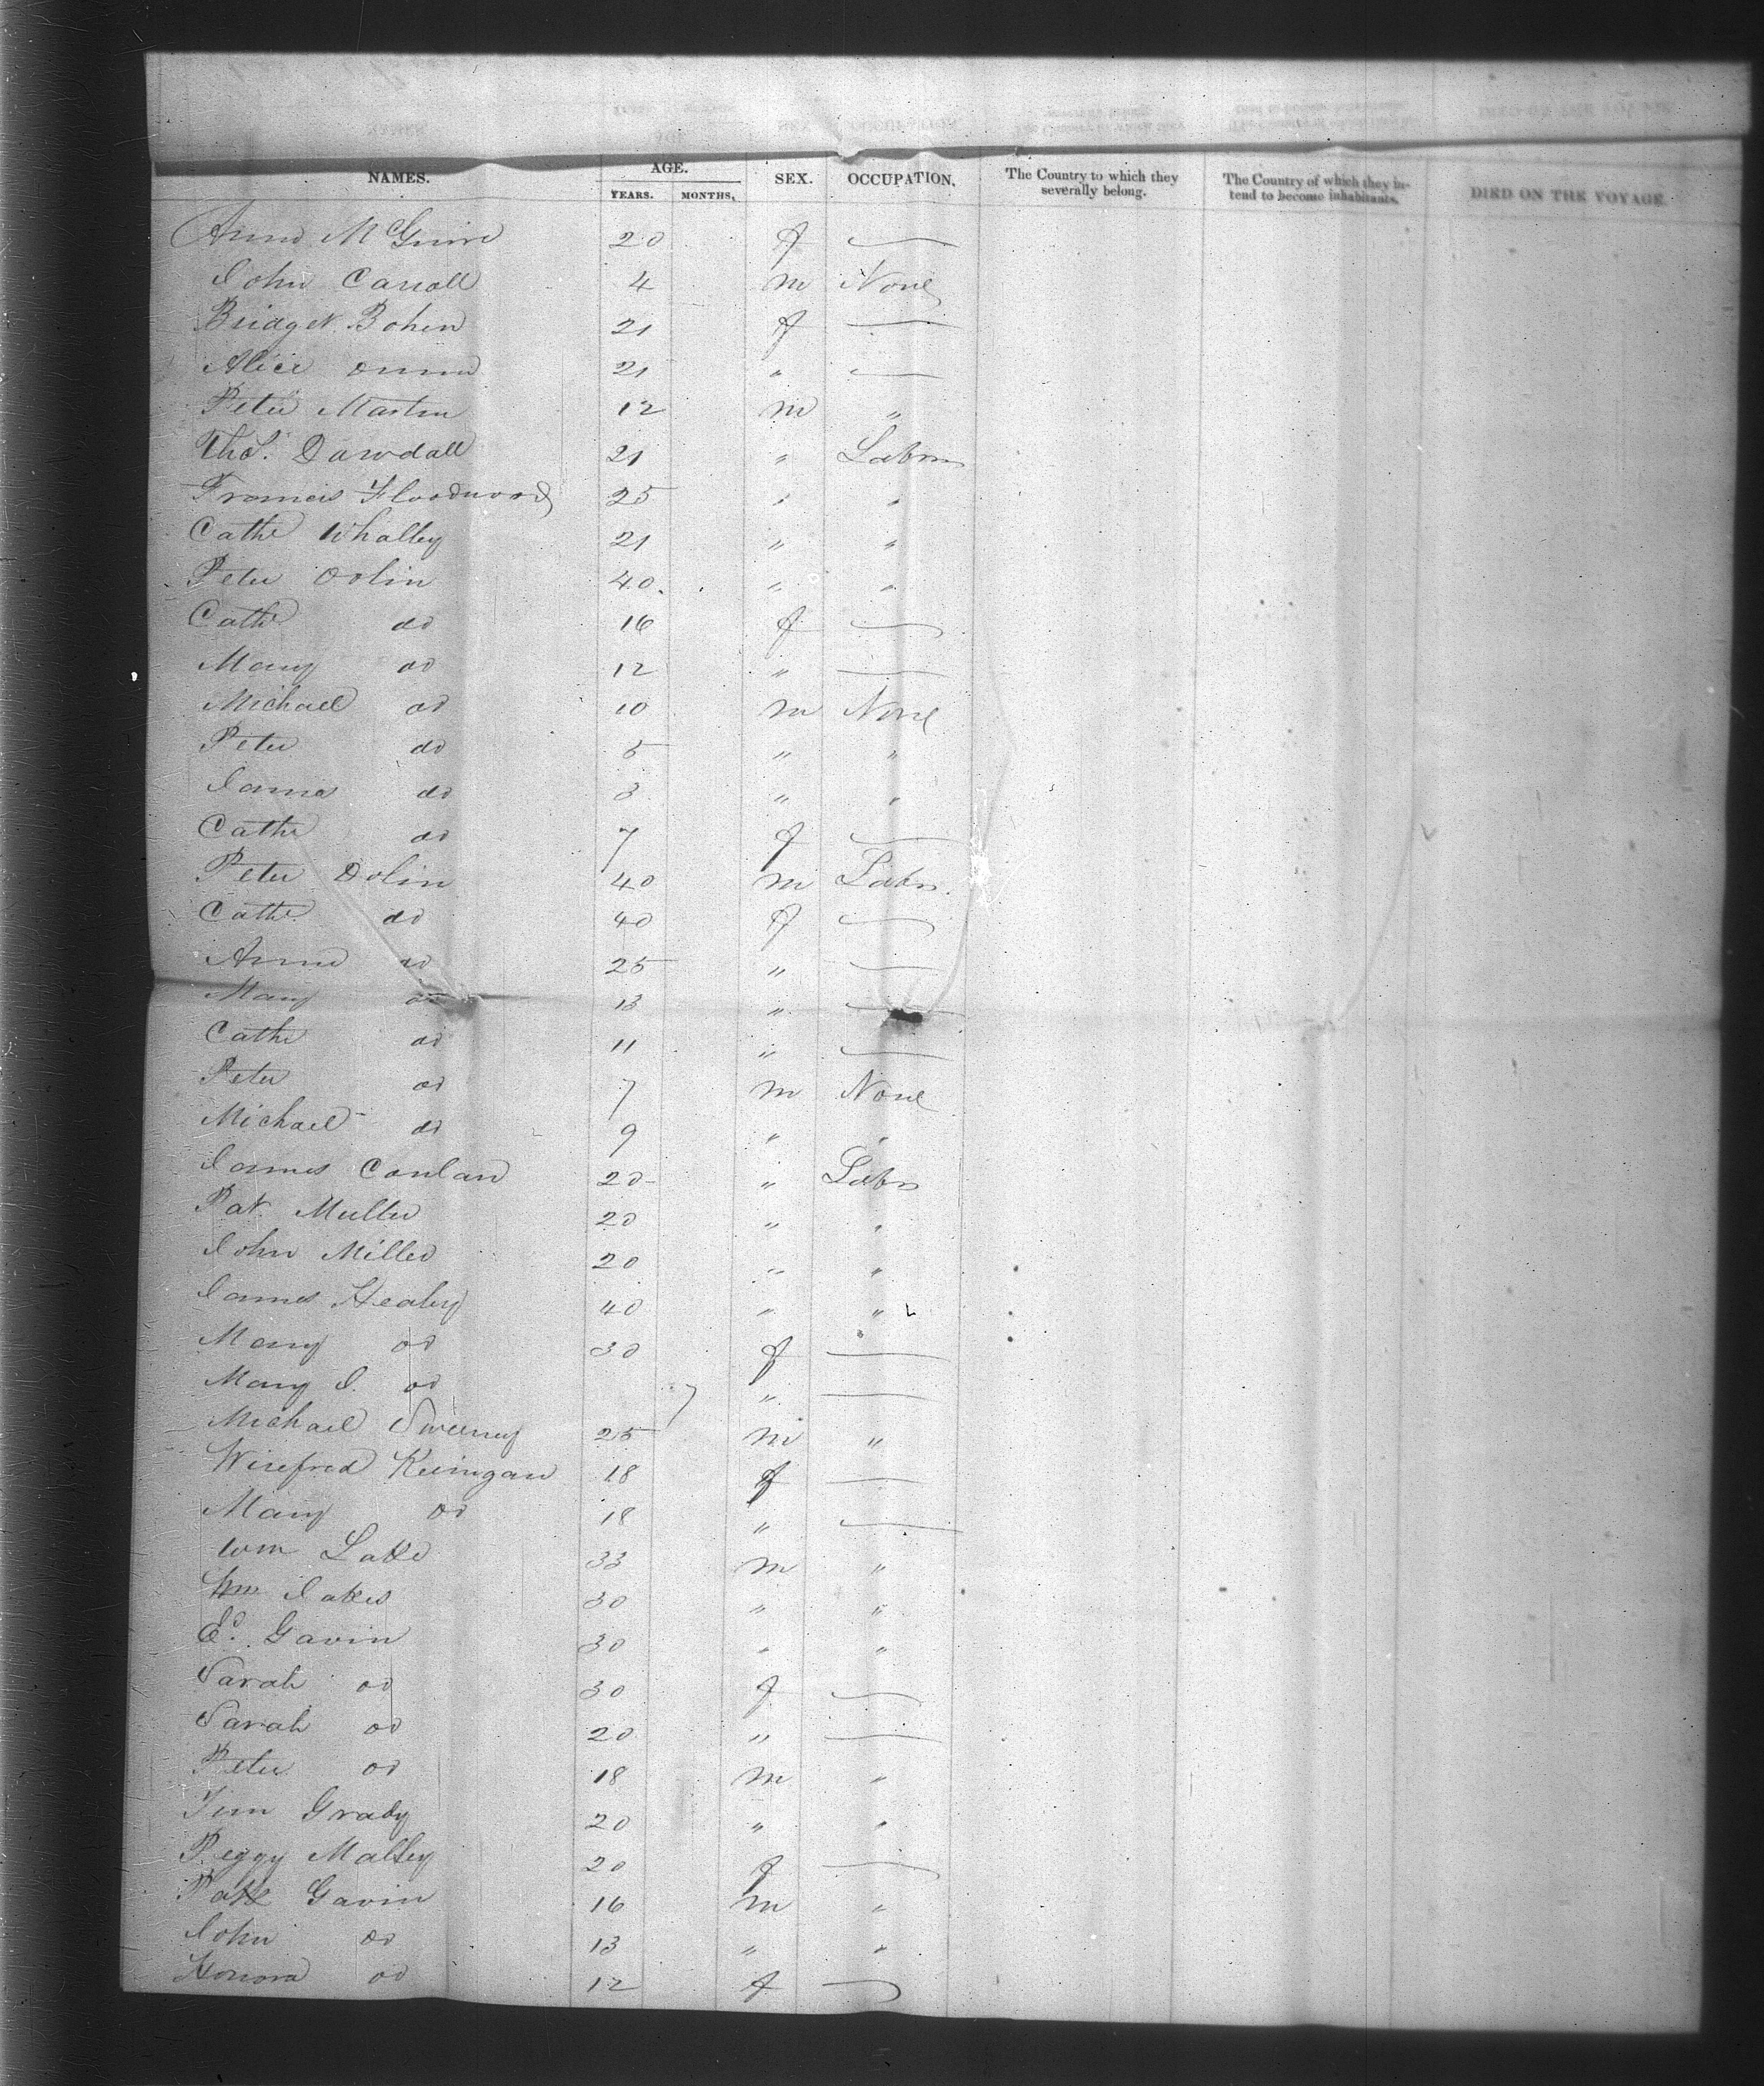 NAMES. AGE. SEX. OCCUPATION. The Country to which they severally belong. The Country of which they intend to become inhabitants. DIED ON THE VOYAGE.
YEARS. MONTHS.
Anne McGuire 20 f —
John Carroll 4 m None
Bridget Bohen 21 f —
Alice 21 " —
Peter Martin 12 m "
Thos. Dawdall 21 " Labor
Francis Floodwood 25 " "
Cathe Whalley 21 " "
Peter Dolin 40. " "
Cathe do 16 f —
Mary do 12 " —
Michael do 10 m None
Peter do 5 " "
James do 3 " "
Cathe do 7 f —
Peter Dolin 40 m Labr.
Cathe do 40 f —
Anne do 25 " —
Mary do 13 " —
Cathe do 11 " —
Peter do 7 m None
Michael do 9 " "
James Conlan 20 " Labr
Pat Muller 20 " "
John Miller 20 " "
James Healey 40 " "
Mary do 30 f —
Mary J. do 7 " —
Michael Sweeney 25 m "
Winefred Keeingan 18 f —
Mary do 18 " —
Wm Lake 33 m "
Wm Jakes 30 " "
Ed. Gavin 30 " "
Sarah do 30 f —
Sarah do 20 " —
Peter do 18 m "
Tim Grady 20 " "
Peggy Malley 20 f —
Patk Gavin 16 m "
John do 13 " "
Honora do 12 f —